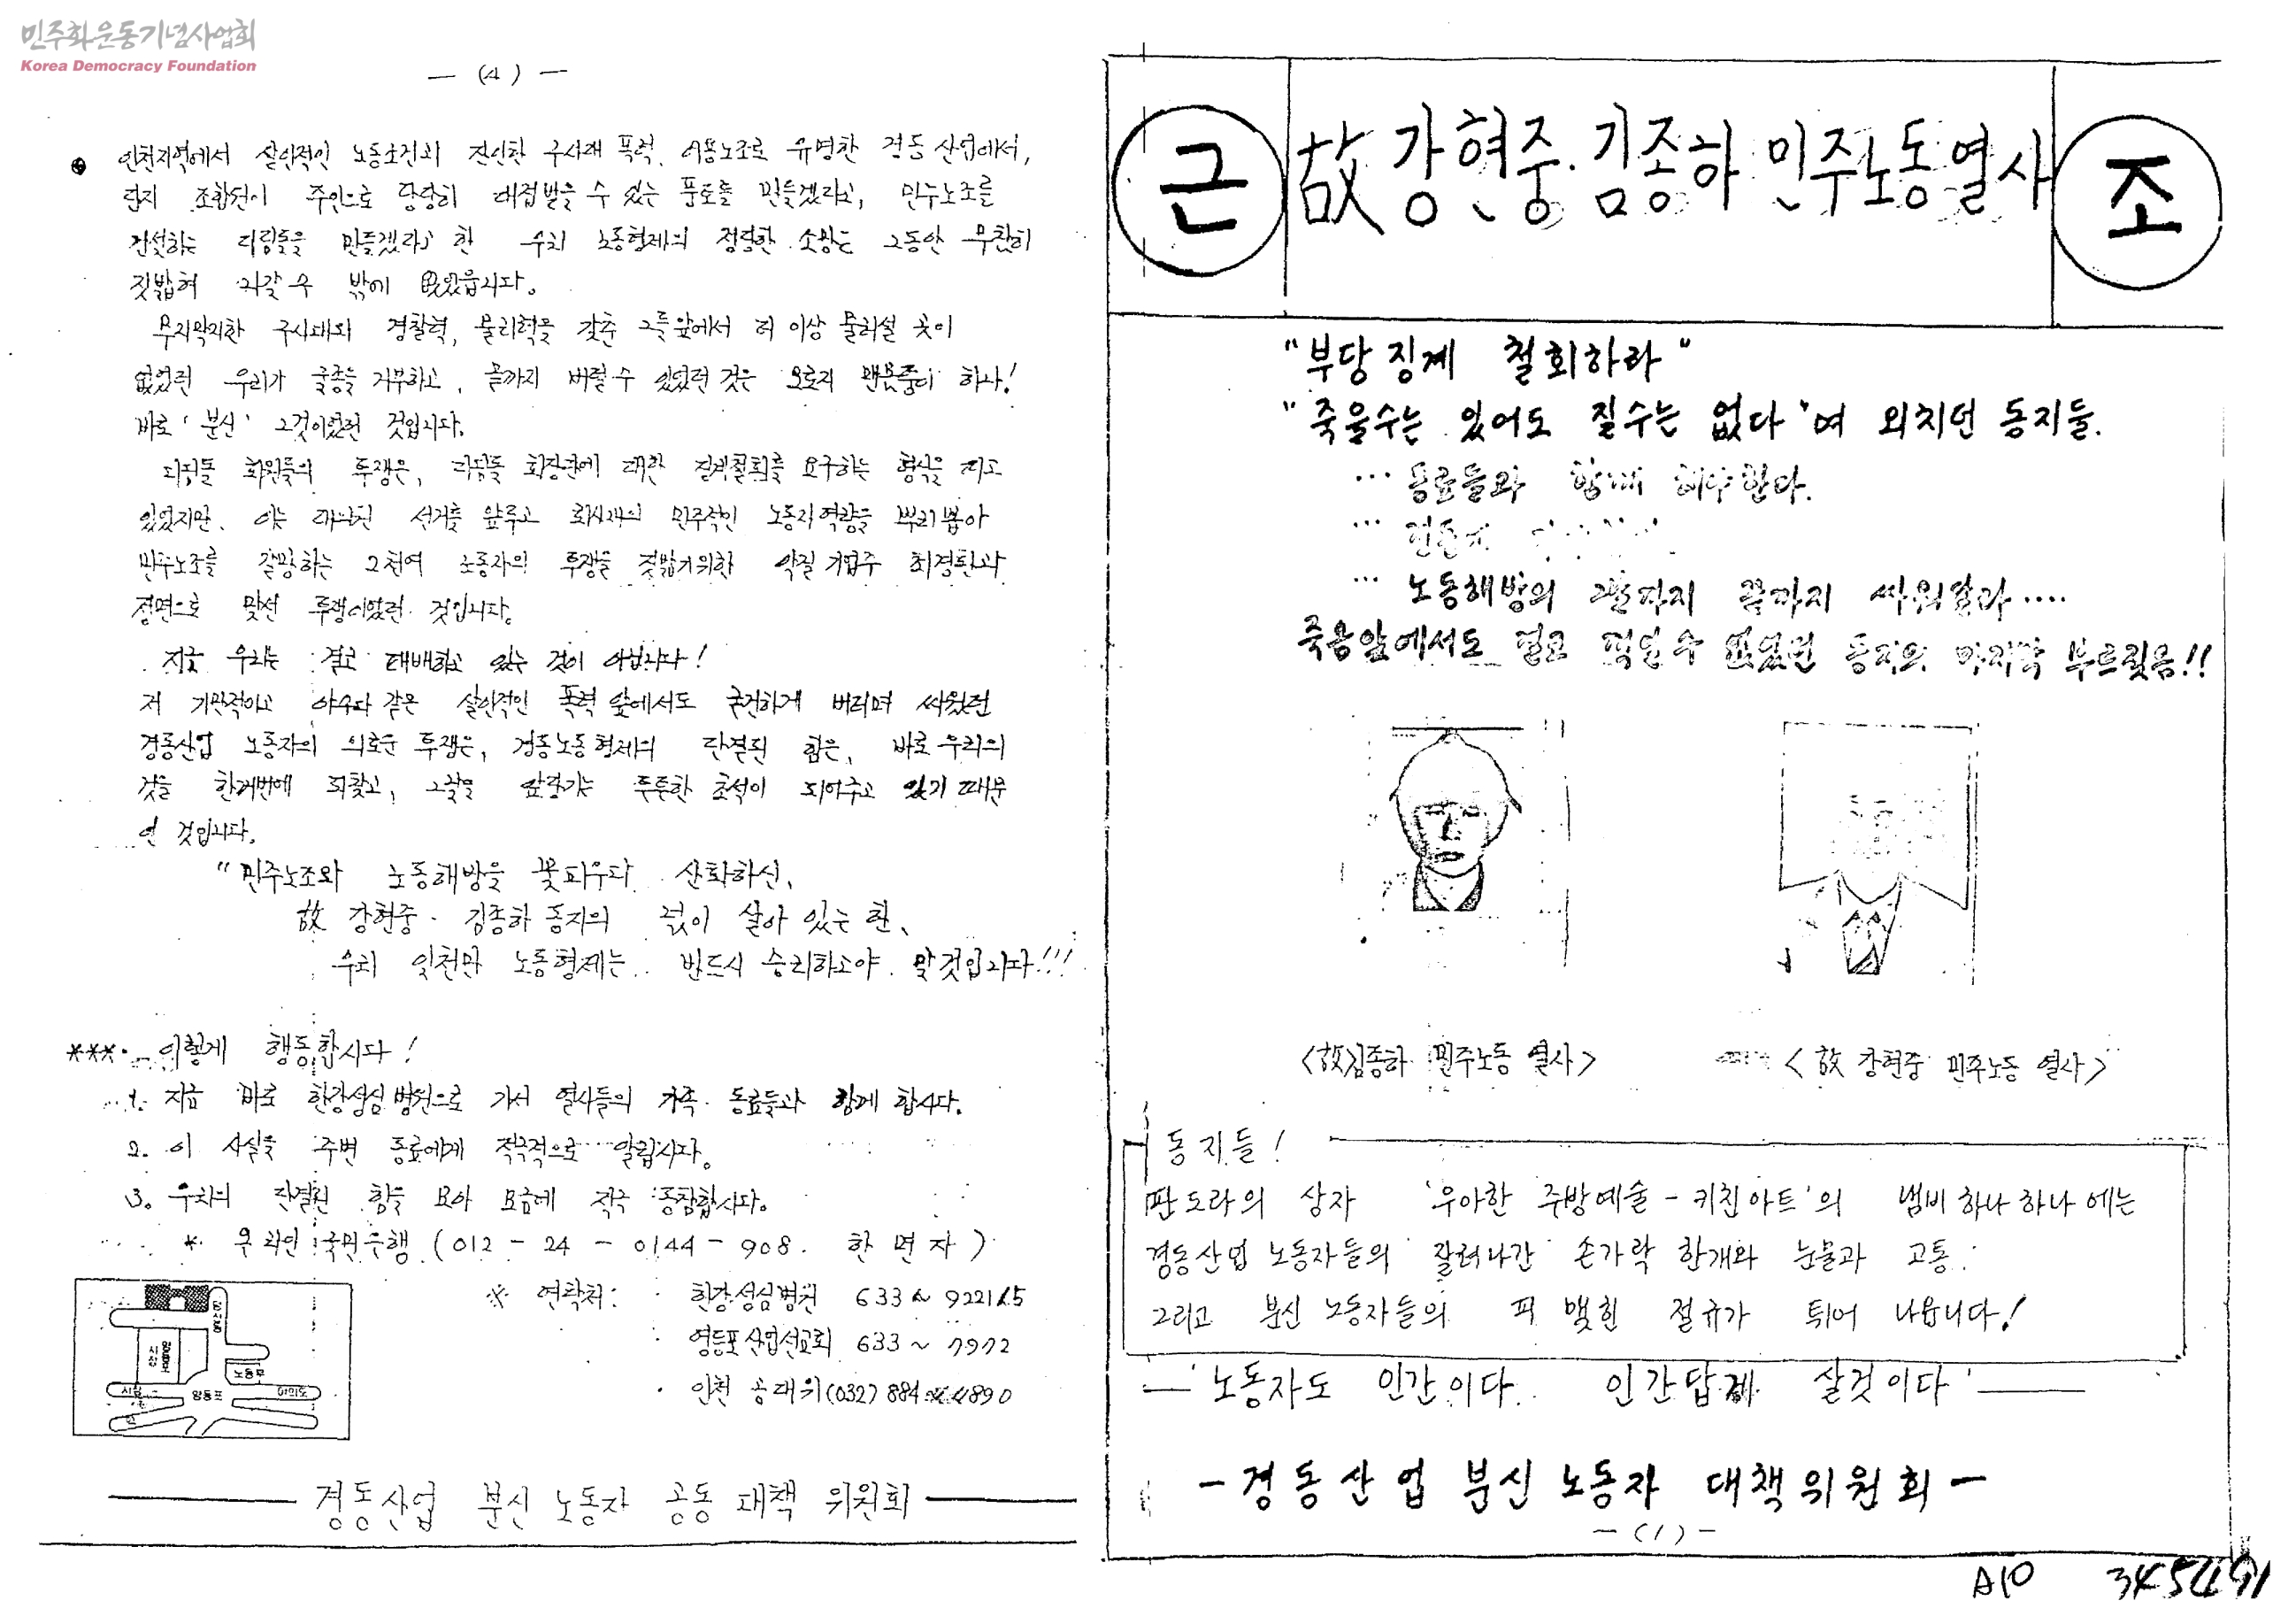 민주화운동기념사업회
Korea Democracy Foundation
— (4) —
인천지역에서 살인적인 노동조건과 잔인한 구사대 폭력, 어용노조로 유명한 경동산업에서,
조합원이 주인으로 당당히 대접받을 수 있는 풍토를 만들겠라고, 민주노조를
건설하는 디딤돌을 만들겠라고 한 우리 노동형제의 정당한 소망은 그동안 무참히
짓밟혀 나갈 수 밖에 없었읍니다.
무지막지한 구사대와 경찰력, 물리력을 갖춘 그들앞에서 더 이상 물러설 곳이
없었던 우리가 굴종을 거부하고, 끝까지 버틸수 있었던 것은 오로지 맨몸뚱이 하나!
바로 '분신' 그것이었던 것입니다.
디딤돌 회원들의 투쟁은, 디딤돌 회장단에 대한 징계철회를 요구하는 형식을 띠고
있었지만, 이는 선거를 앞두고 회사내의 민주적인 노동자역량을 뿌리뽑아
민주노조를 갈망하는 2천여 노동자의 투쟁을 짓밟기위한 악질 기업주 최경환과
정면으로 맞선 투쟁이었던 것입니다.
지금 우리는 결코 패배하고 있는 것이 아닙니다!
저 기만적이고 야수와 같은 살인적인 폭력 앞에서도 굳건하게 버티며 싸웠던
경동산업 노동자의 의로운 투쟁은, 경동노동형제의 단결된 힘은, 바로 우리의
것을 한꺼번에 되찾고, 그날을 앞당기는 튼튼한 초석이 되어주고 있기 때문
인 것입니다.
"민주노조와 노동해방을 꽃피우다 산화하신,
故 강현중 · 김종하 동지의 넋이 살아 있는 한,
우리 일천만 노동형제는 반드시 승리하고야 말것입니다!!!
***. 이렇게 행동합시다!
1. 지금 바로 한강성심병원으로 가서 열사들의 가족·동료들과 함께 합시다.
2. 이 사실을 주변 동료에게 적극적으로 알립시다.
3. 우리의 단결된 힘을 모아 모금에 적극 동참합시다.
* 온라인 국민은행 (012-24-0144-908. 한면자)
※ 연락처: 한강성심병원 633~9221/5
영등포산업선교회 633~7972
인천 공대위 (032) 884~4890
시장
노동부
영등포
여의도
경동산업 분신 노동자 공동 대책 위원회
근 故 강현중·김종하 민주노동열사 조
"부당징계 철회하라"
"죽을수는 있어도 질수는 없다"며 외치던 동지들.
… 동료들과 함께 해야한다.
… 노동해방의 그날까지 끝까지 싸워달라….
죽음앞에서도 결코 꺾일수 없었던 동지의 마지막 부르짖음!!
<故김종하 민주노동 열사>
<故 강현중 민주노동 열사>
동지들!
판도라의 상자 '우아한 주방예술-키친아트'의 냄비 하나 하나에는
경동산업 노동자들의 잘려나간 손가락 한개와 눈물과 고통.
그리고 분신 노동자들의 피 맺힌 절규가 튀어 나옵니다!
— '노동자도 인간이다. 인간답게 살것이다' —
— 경동산업 분신 노동자 대책위원회 —
— (1) —
A10